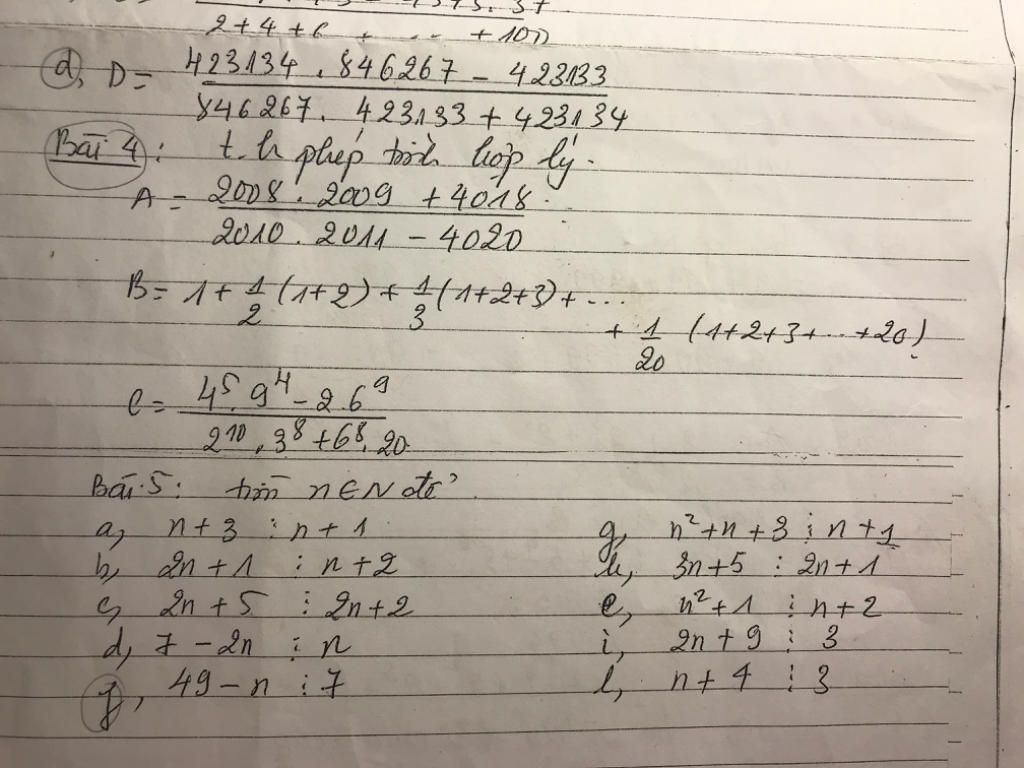 2+4+6+ ... +100
d, D= 423134 . 846267 − 423133
846267. 423133 + 423134
Bài 4 : t.h phép tính hợp lý.
A = 2008 . 2009 + 4018
2010 . 2011 − 4020
B= 1 + 1/2 (1+2) + 1/3 (1+2+3) + ...
+ 1/20 (1+2+3+...+20)
C= 4⁵. 9⁴ − 2.6⁹
2¹⁰ . 3⁸ + 6⁸. 20
Bài 5: tìm n∈N để
a, n+3 ⋮ n+1
b, 2n+1 ⋮ n+2
c, 2n+5 ⋮ 2n+2
d, 7 − 2n ⋮ n
f, 49 − n ⋮ 7
g, n²+n+3 ⋮ n+1
h, 3n+5 ⋮ 2n+1
e, n²+1 ⋮ n+2
i, 2n+9 ⋮ 3
l, n+4 ⋮ 3